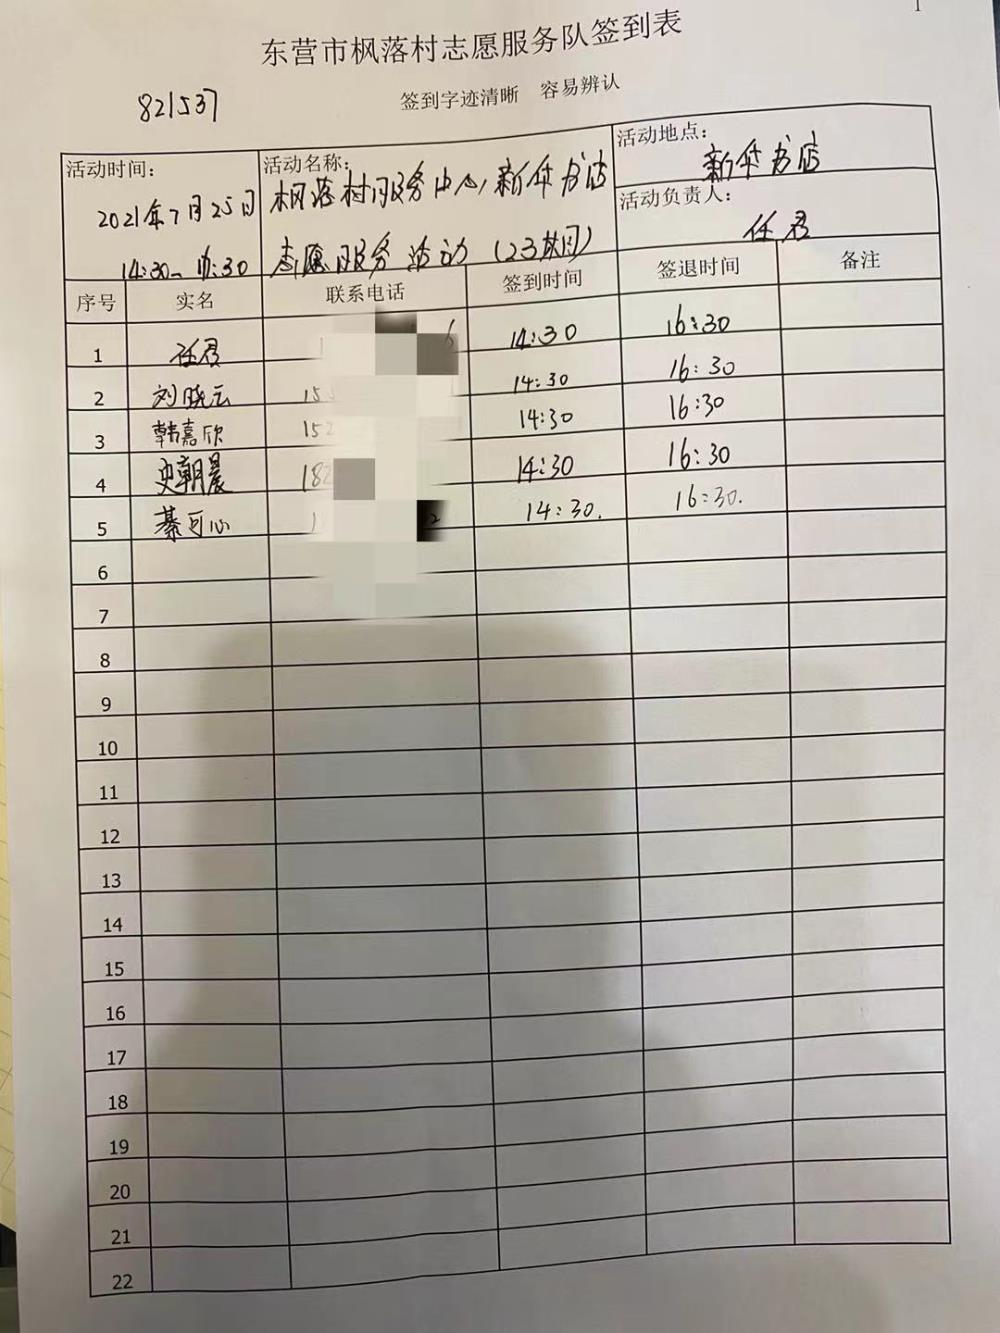 1
东营市枫落村志愿服务队签到表
821537
签到字迹清晰 容易辨认
活动时间： 活动名称： 活动地点：
2021年7月25日 枫落村服务中心，新华书店 新华书店
14:30—16:30 志愿服务活动（23救助） 活动负责人： 任君
序号 实名 联系电话 签到时间 签退时间 备注
1 任君 1 6 14:30 16:30
2 刘晓云 15 14:30 16:30
3 韩嘉欣 152 14:30 16:30
4 史朝晨 182 14:30 16:30
5 綦可心 1 2 14:30. 16:30.
6
7
8
9
10
11
12
13
14
15
16
17
18
19
20
21
22